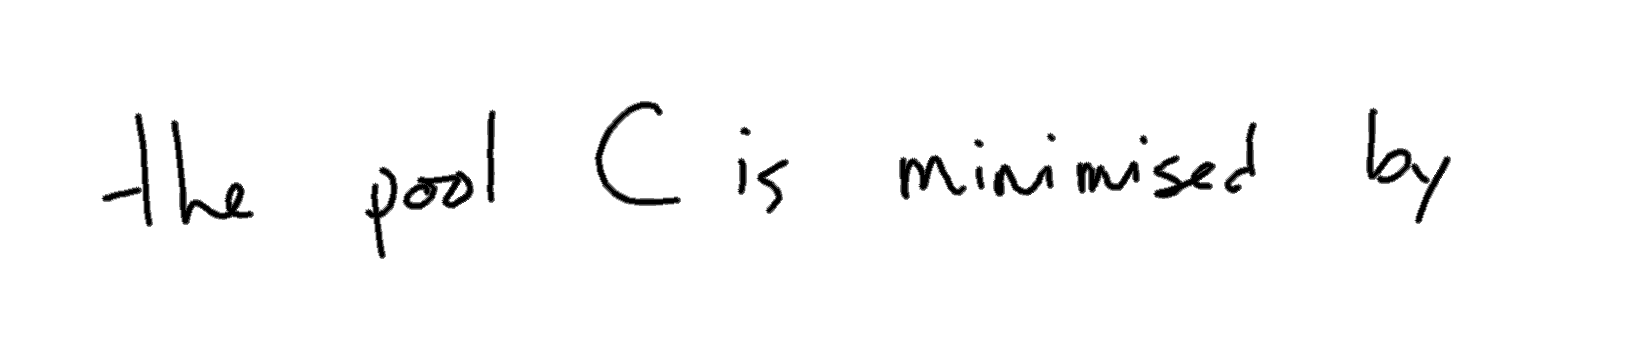 the pool C is minimised by